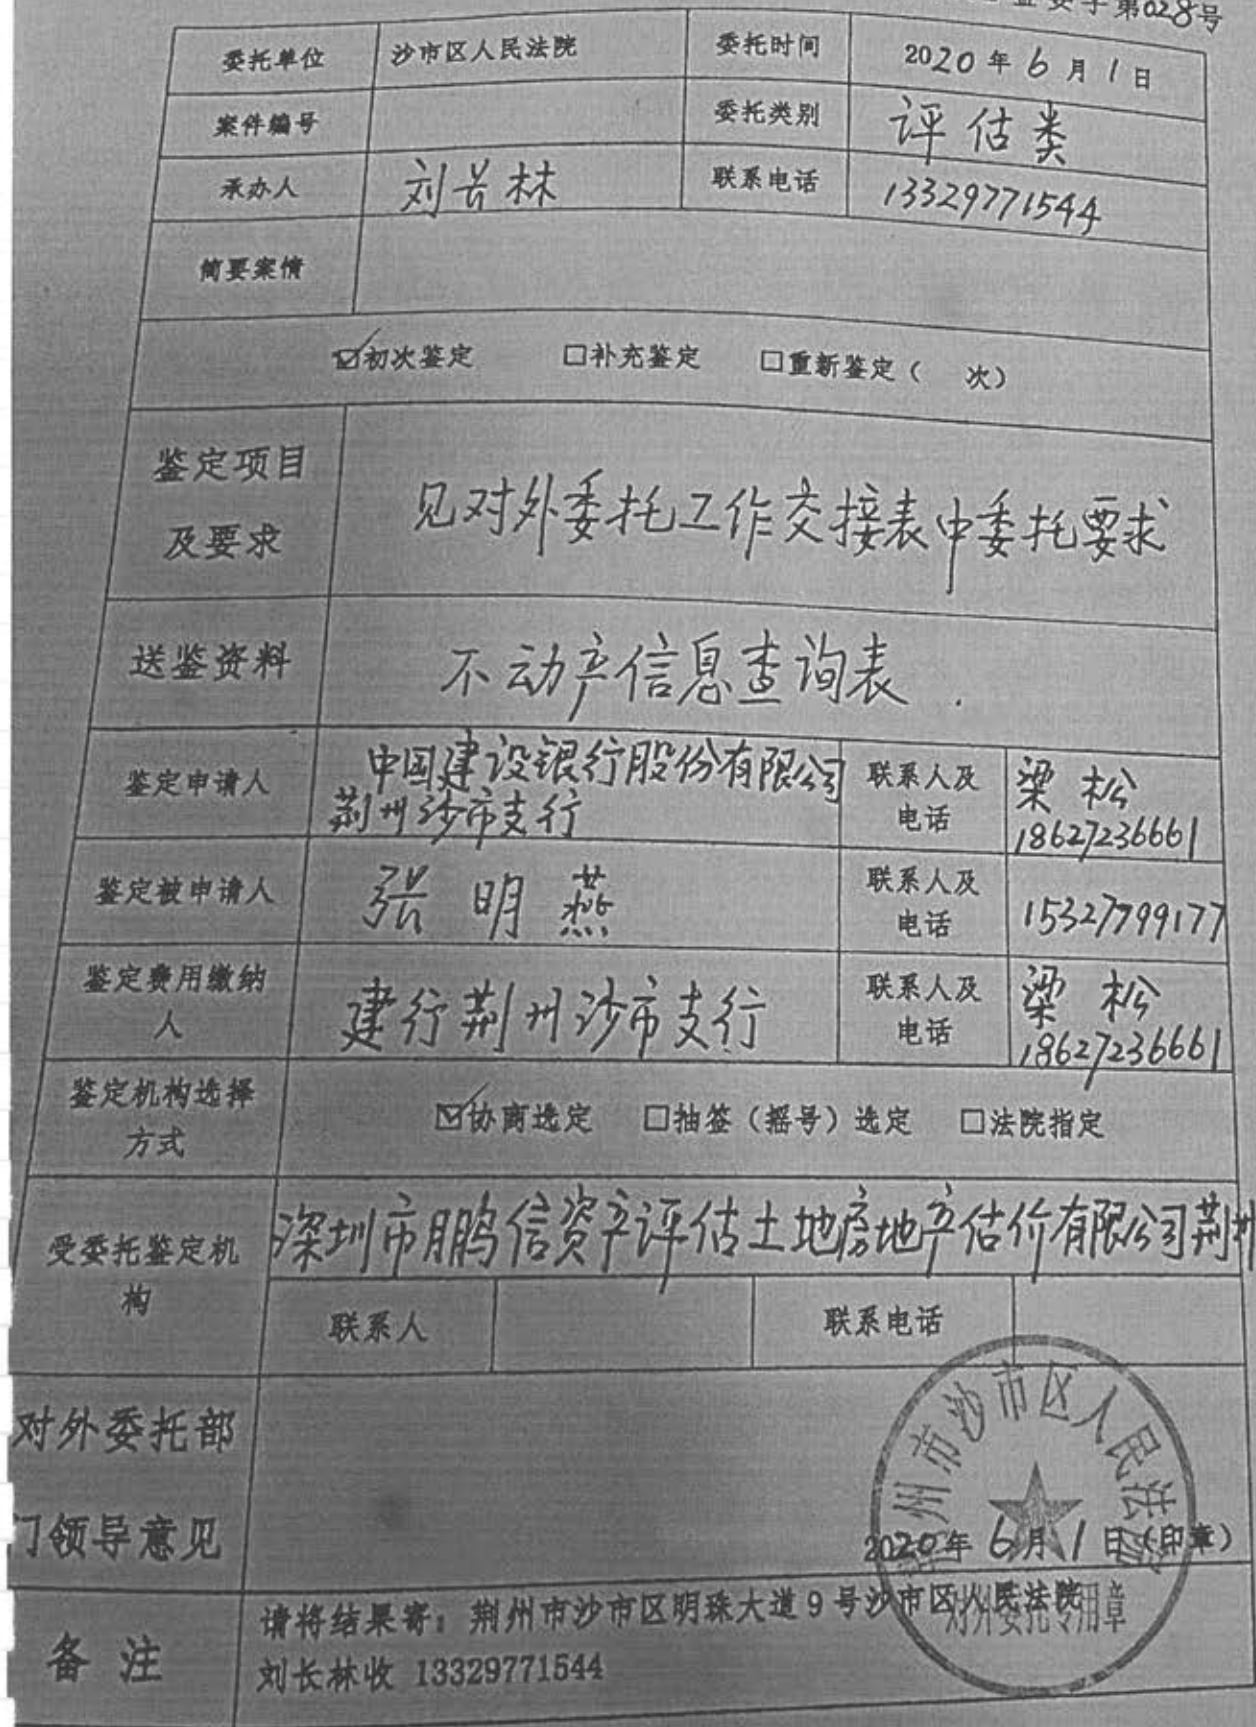 第028号
委托单位 沙市区人民法院 委托时间 2020年6月1日
案件编号 委托类别 评估类
承办人 刘长林 联系电话 13329771544
简要案情
☑初次鉴定 □补充鉴定 □重新鉴定( 次)
鉴定项目
及要求
见对外委托工作交接表中委托要求
送鉴资料 不动产信息查询表.
鉴定申请人
中国建设银行股份有限公司
荆州沙市支行
联系人及
电话
梁松
18627236661
鉴定被申请人 张明燕
联系人及
电话
15327799177
鉴定费用缴纳
人
建行荆州沙市支行
联系人及
电话
梁松
18627236661
鉴定机构选择
方式
☑协商选定 □抽签(摇号)选定 □法院指定
受委托鉴定机
构
深圳市鹏信资产评估土地房地产估价有限公司荆州
联系人 联系电话
对外委托部
门领导意见
州市沙市区人民法院
2020年6月1日(印章)
对外委托专用章
备注
请将结果寄:荆州市沙市区明珠大道9号沙市区人民法院
刘长林收 13329771544